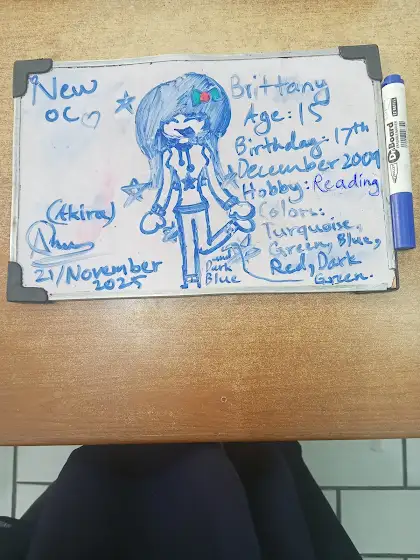 New
OC
Brittany
Age: 15
Birthday: 17th
December 2009
Hobby: Reading
Colors:
Turquoise,
Green, Blue,
Red, Dark
Green.
and
Dark
Blue
(Akira)
21/November
2025
OnBoard